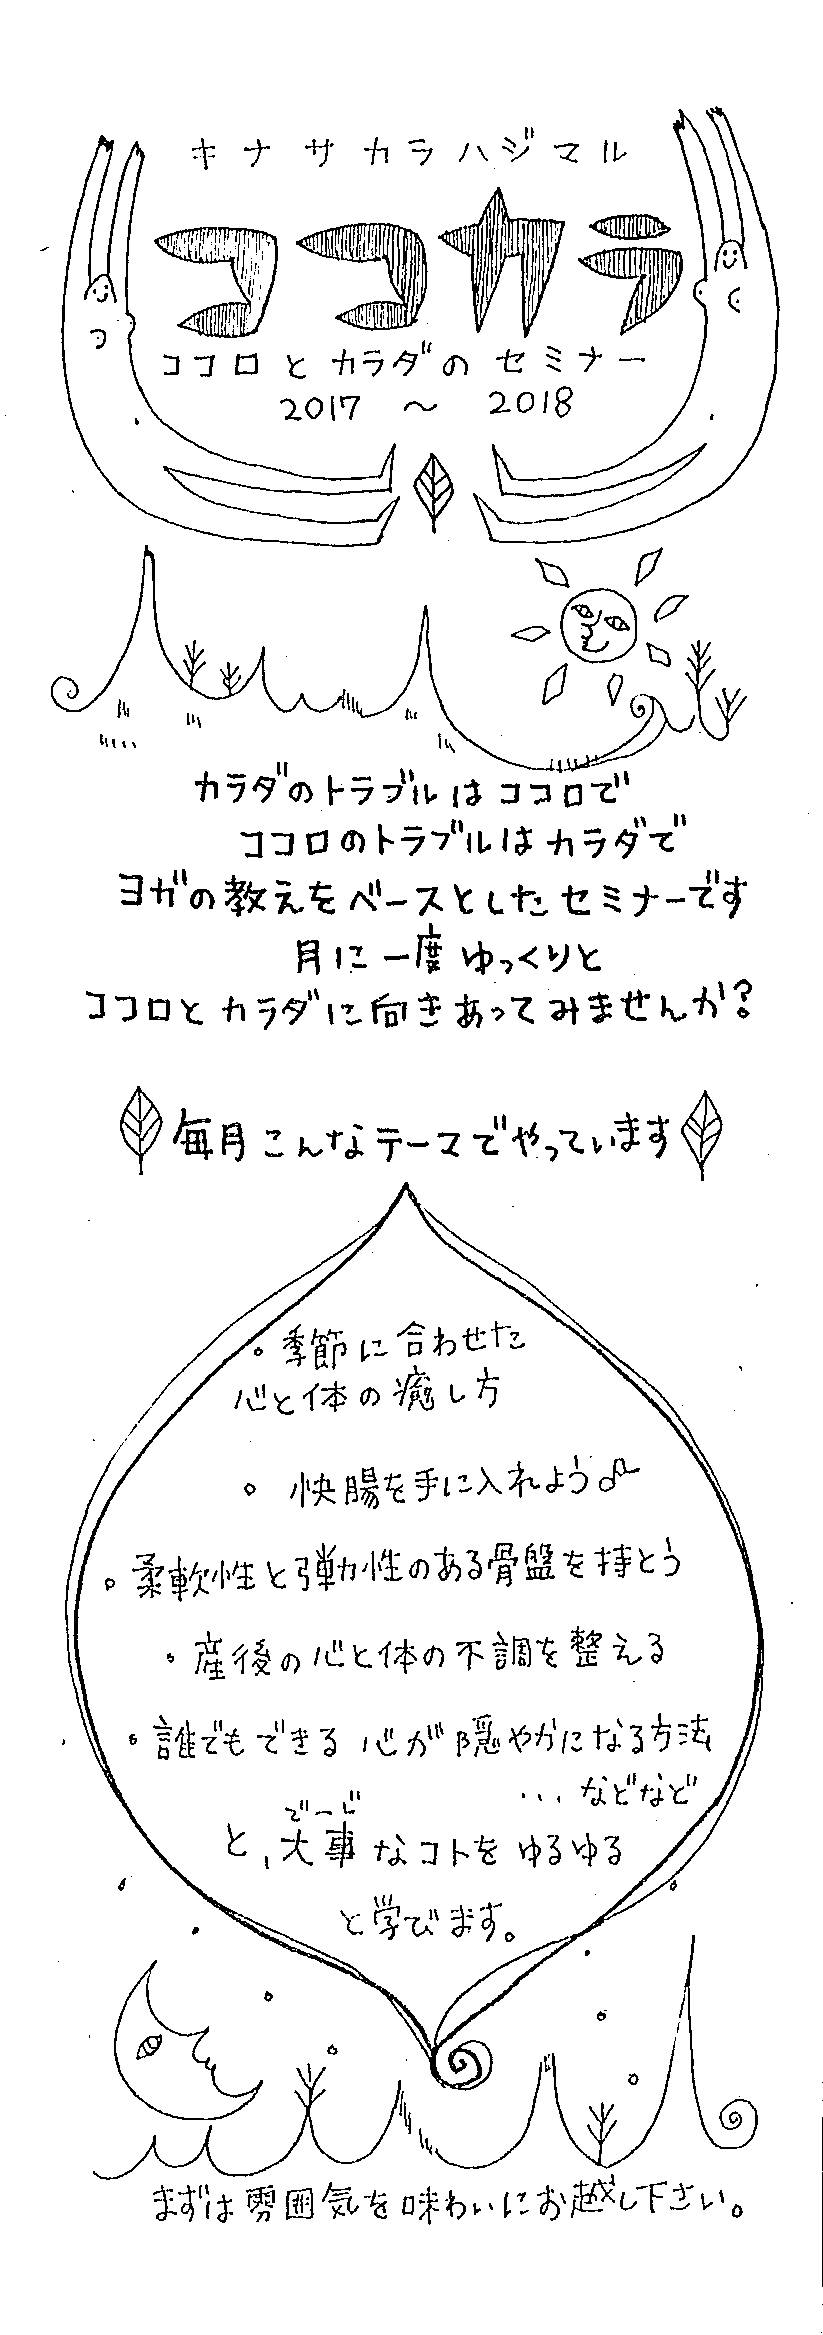 キナサカラハジマル
ココカラ
ココロとカラダのセミナー
2017 〜 2018
カラダのトラブルはココロで
ココロのトラブルはカラダで
ヨガの教えをベースとしたセミナーです
月に一度ゆっくりと
ココロとカラダに向きあってみませんか?
毎月こんなテーマでやっています
。季節に合わせた
心と体の癒し方
。快腸を手に入れよう♫
。柔軟性と弾力性のある骨盤を持とう
。産後の心と体の不調を整える
。誰でもできる 心が穏やかになる方法
...などなど
でーじ
と、大事なコトをゆるゆる
と学びます。
まずは雰囲気を味わいにお越し下さい。